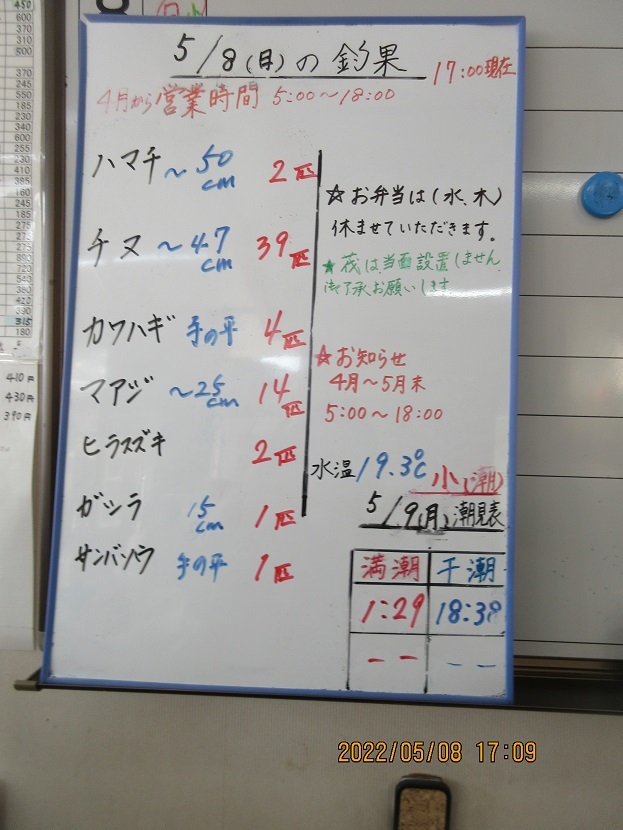 5/8(日)の釣果
17:00現在
4月から営業時間 5:00~18:00
ハマチ ~50cm 2匹
チヌ ~47cm 39匹
カワハギ 手の平 4匹
マアジ ~25cm 14匹
ヒラスズキ 2匹
ガシラ 15cm 1匹
サンバソウ 手の平 1匹
☆お弁当は(水、木)
休ませていただきます。
★筏は当面設置しません
御了承お願いします
☆お知らせ
4月~5月末
5:00~18:00
水温 19.3℃
小(潮)
5/9(月)潮見表
満潮 干潮
1:29 18:38
-- --
410円
430円
390円
2022/05/08 17:09